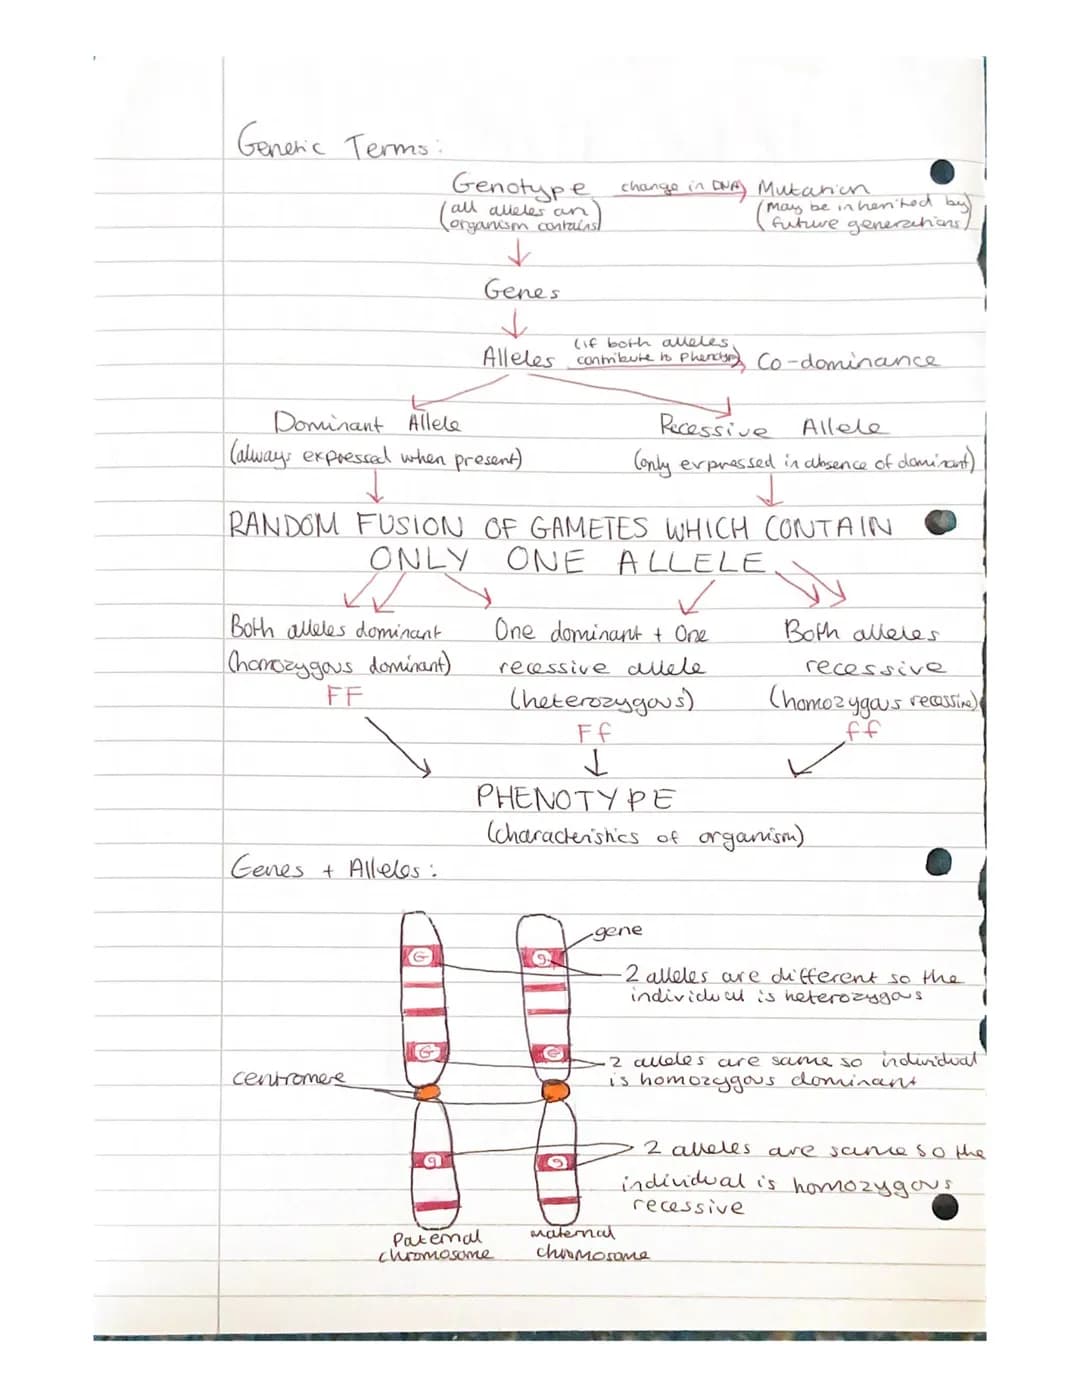 Genetic Terms:
Genotype change in DNA Mutation
(all alleles an organism contains) (May be inherited by future generations)
Genes
(if both alleles
Alleles contribute to Phenotype) Co-dominance
Dominant Allele Recessive Allele
(always expressed when present) (only expressed in absence of dominant)
RANDOM FUSION OF GAMETES WHICH CONTAIN
ONLY ONE ALLELE
Both alleles dominant One dominant + One Both alleles
(homozygous dominant) recessive allele recessive
FF (heterozygous) (homozygous recessive)
Ff ff
PHENOTYPE
(characteristics of organism)
Genes + Alleles:
gene
G g
2 alleles are different so the
individual is heterozygous
G G
2 alleles are same so individual
is homozygous dominant
centromere
g g
2 alleles are same so the
individual is homozygous
recessive
Paternal maternal
chromosome chromosome